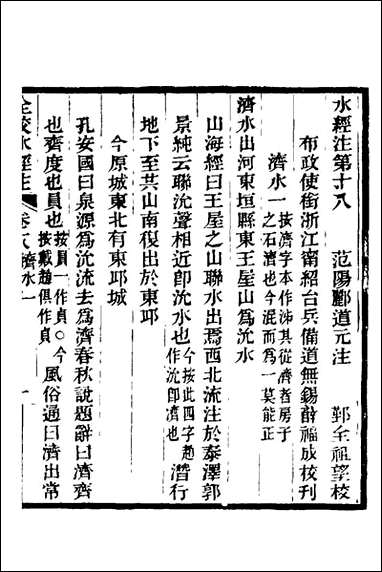 水經注第十八　范陽酈道元注　鄞全祖望校
布政使銜浙江甯紹台兵備道無錫薛福成校刊
濟水一按濟字本作泲其從濟者房子之石濟也今混而為一莫能正
濟水出河東垣縣東王屋山為沇水
山海經曰王屋之山聯水出焉西北流注於泰澤郭
景純云聯沇聲相近即沇水也今按此四字趙作沇即濟也潛行
地下至共山南復出於東邱
今原城東北有東邱城
孔安國曰泉源為沇流去為濟春秋說題辭曰濟齊
也齊度也員也按員一作貞○今按戴趙俱作貞風俗通曰濟出常
全校水經注　卷十八濟水一　一